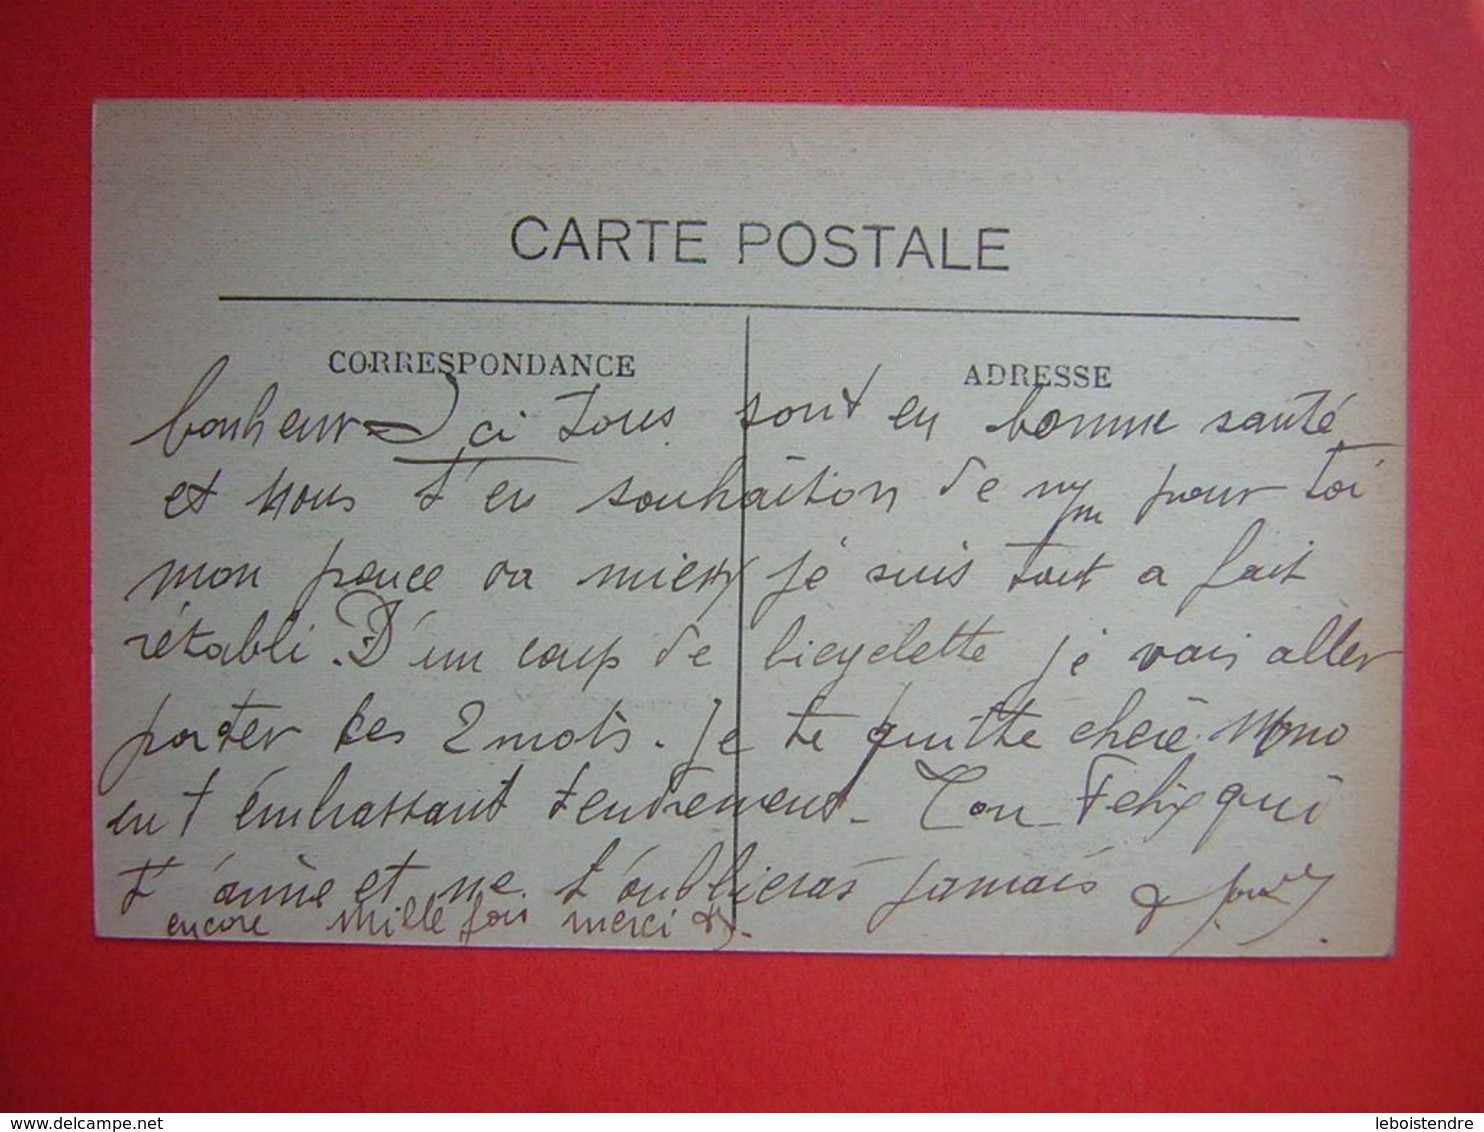 CARTE POSTALE
CORRESPONDANCE
ADRESSE
bonheur Ici tous sont en bonne santé
et nous t'en souhaition de m pour toi
mon pouce va mieux je suis tout a fait
rétabli. D'un coup de bicyclette je vais aller
porter ces 2 mots. Je te quitte chère Mono
en t'embrassant tendrement. Ton Felix qui
t'aime et ne t'oublieras jamais
encore mille fois merci
leboistendre